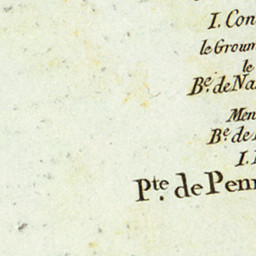 I. Con
le Groum
le
Be. de Na
Men
Be. de
I.
Pte. de Penm